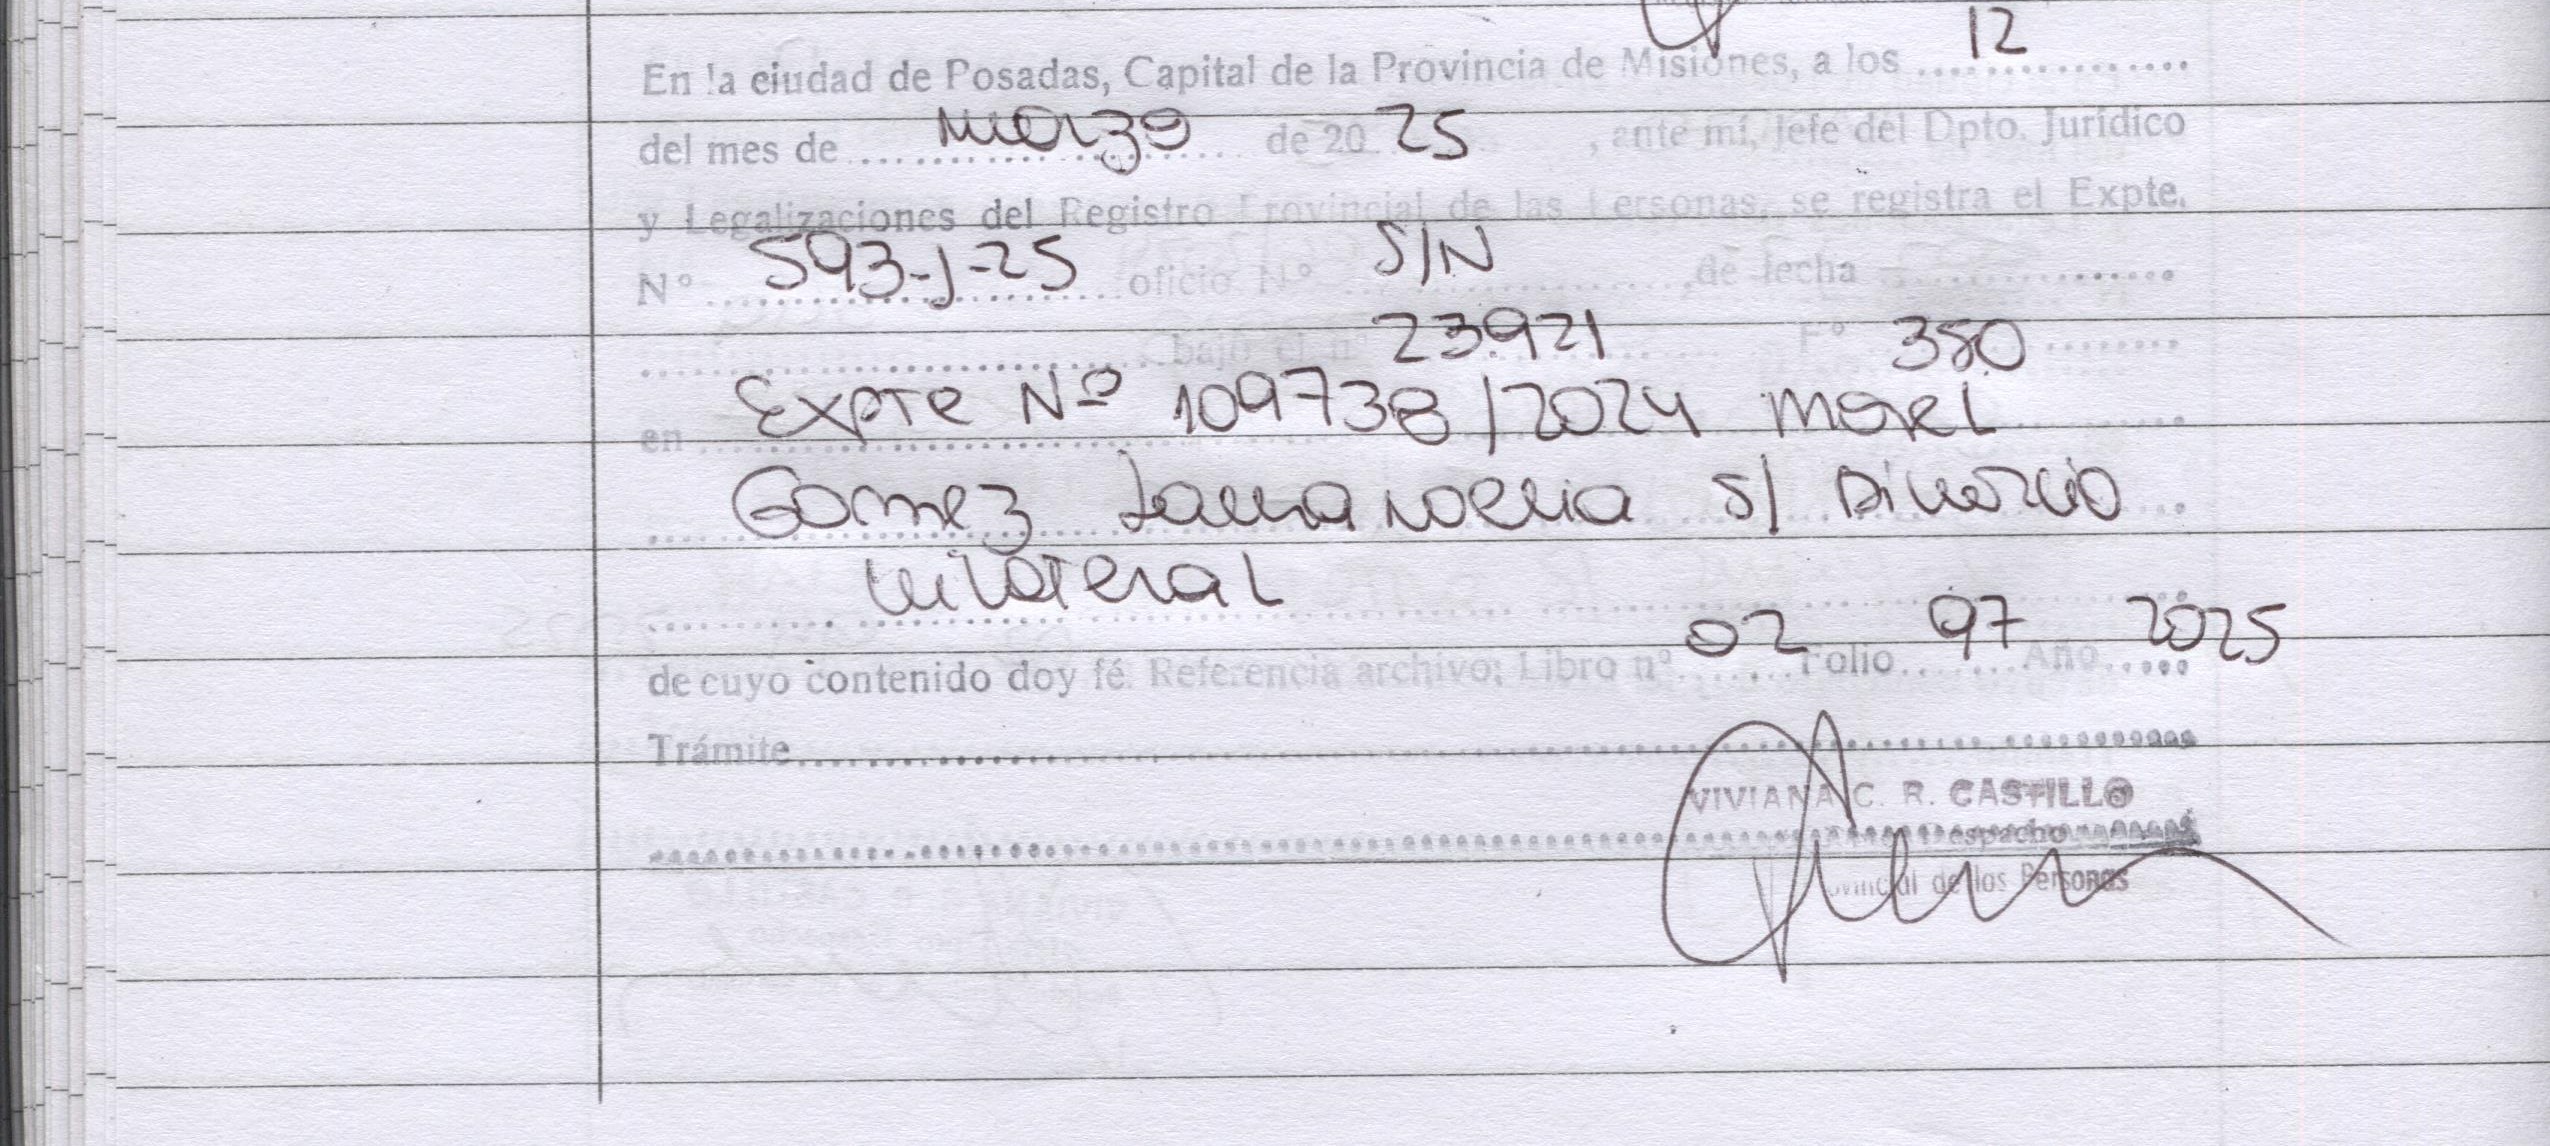 12
En la ciudad de Posadas, Capital de la Provincia de Misiones, a los
del mes de marzo de 20 25 , ante mí, Jefe del Dpto. Jurídico
y Legalizaciones del Registro Provincial de las Personas, se registra el Expte.
Nº 593-J-25 oficio Nº S/N de fecha
bajo el nº 23921 Fº 380
en Expte Nº 109738/2024 Morel
Gomez s/ Divorcio
unilateral
de cuyo contenido doy fé. Referencia archivo: Libro nº 02 Folio 97 Año 2025
Trámite
VIVIANA C. R. CASTILLO
Despacho
Provincial de las Personas